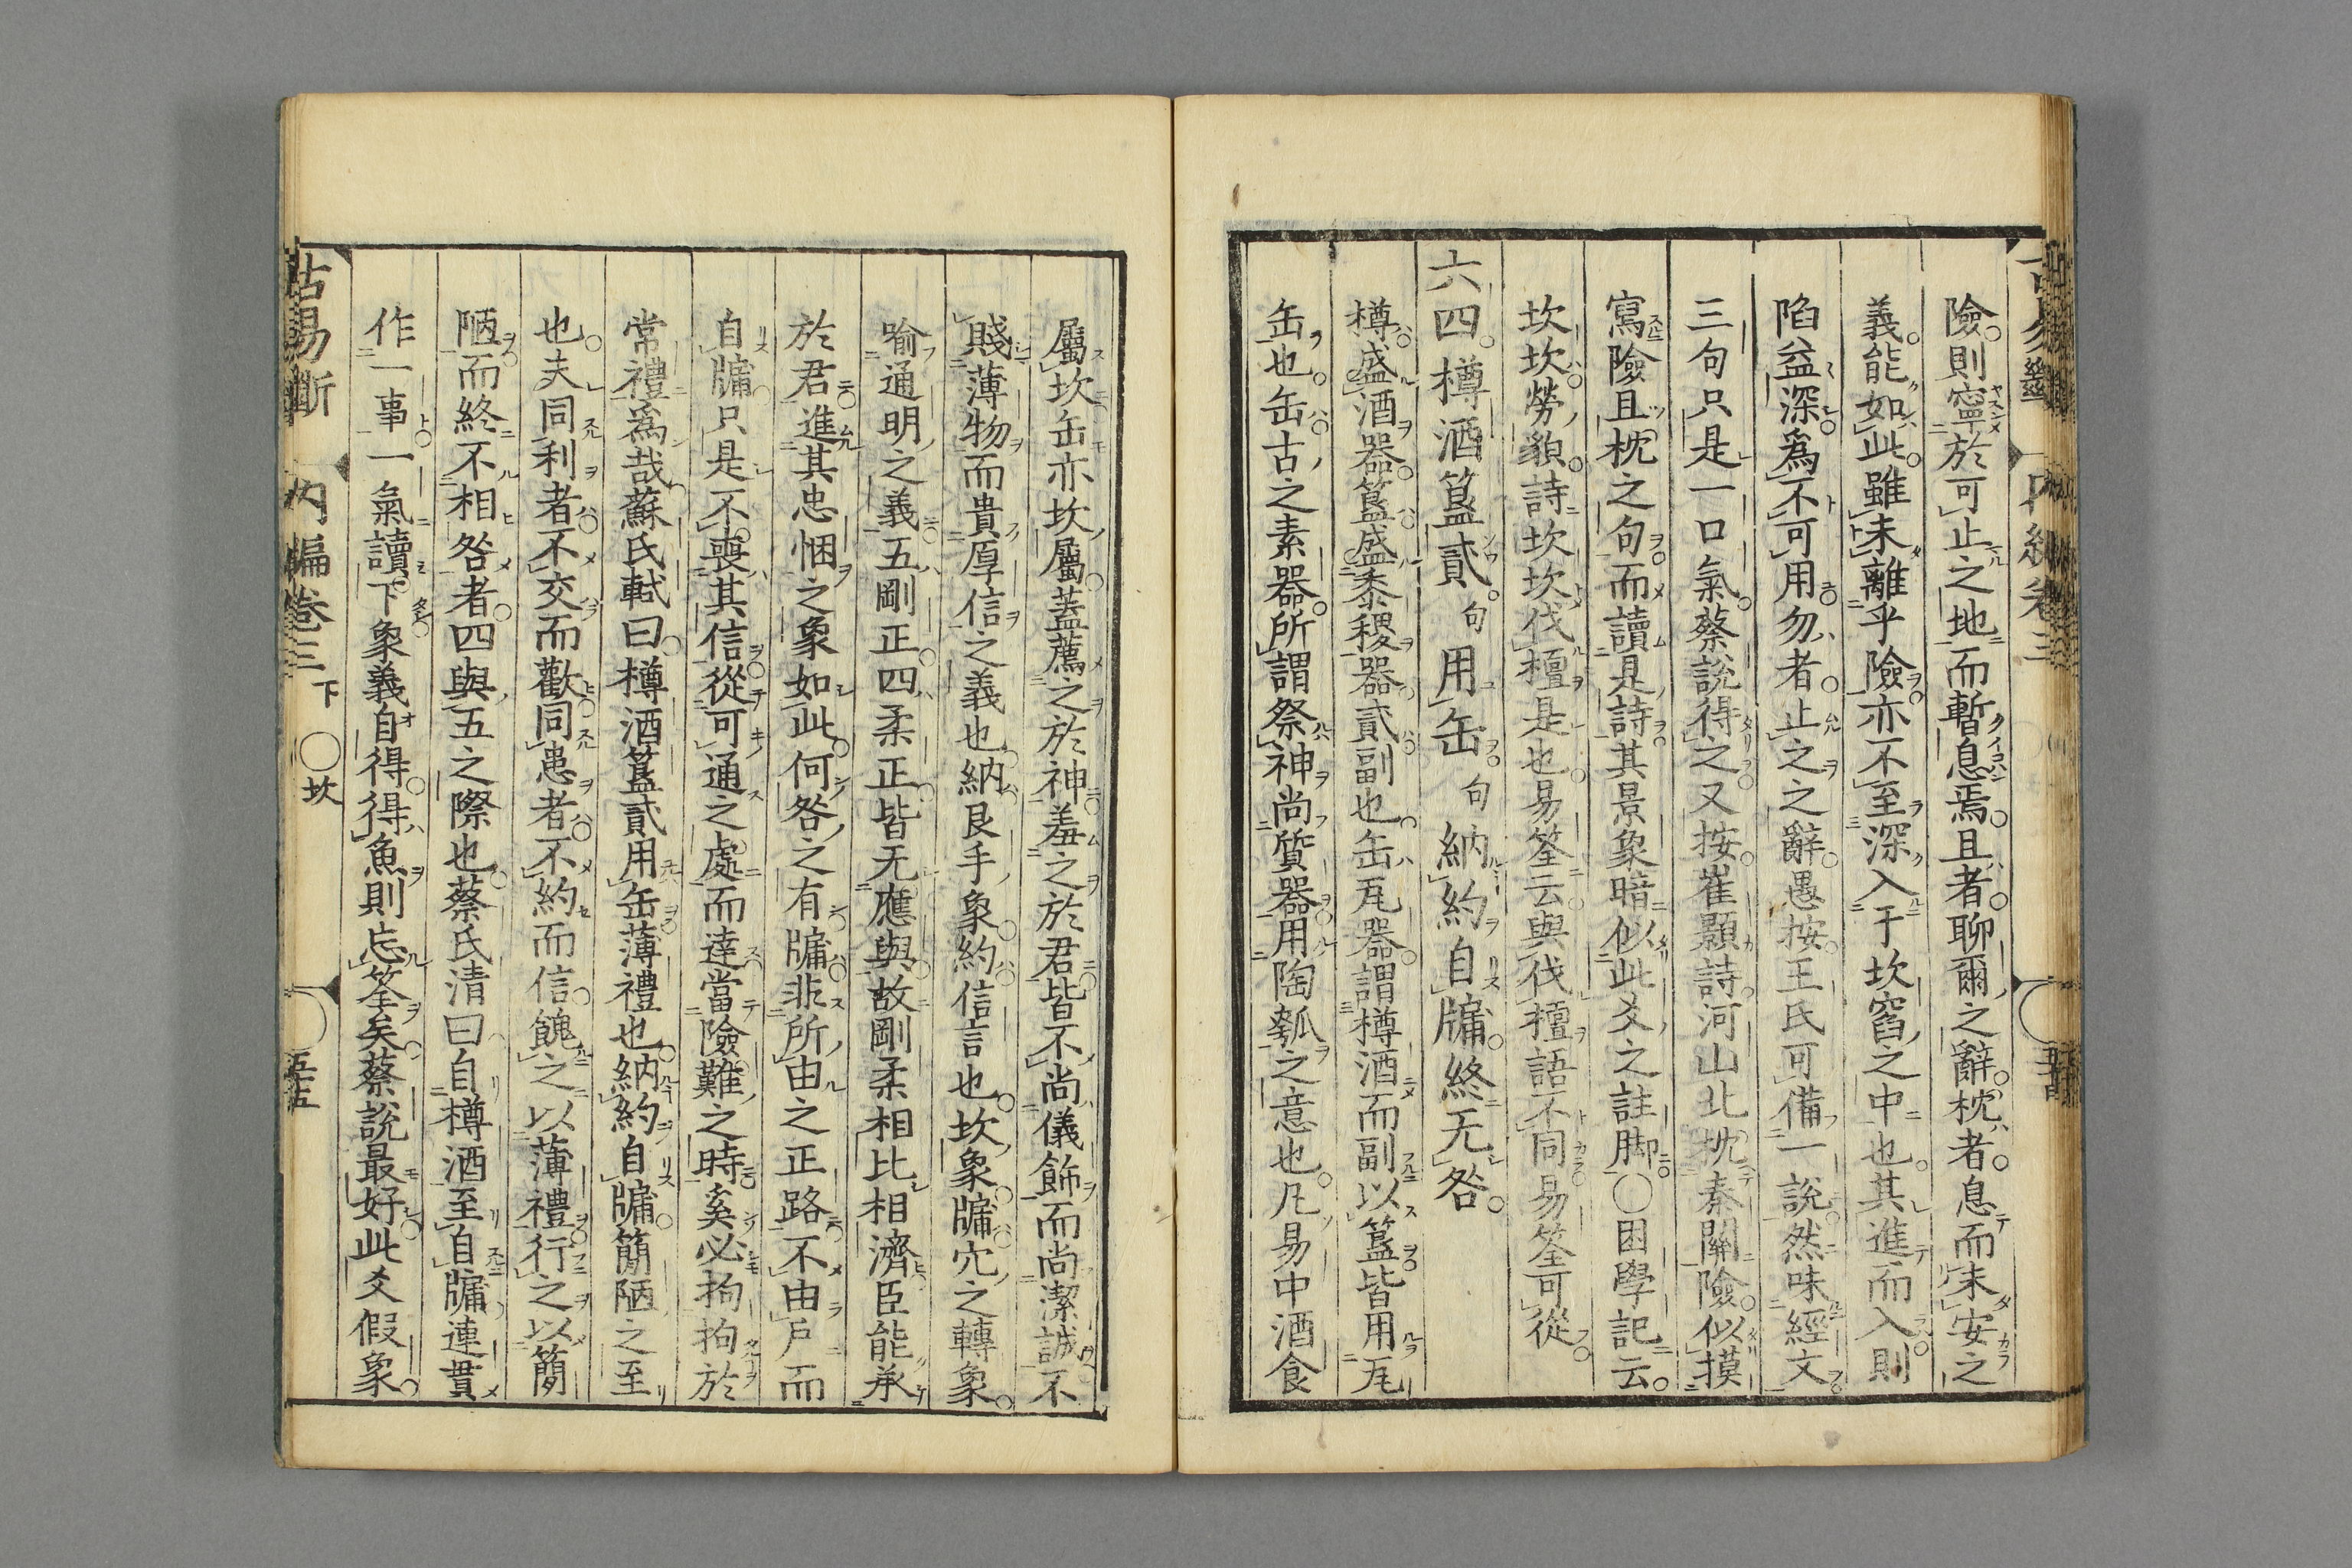 險則寧於可止之地而暫息焉且者聊爾之辭枕者息而未安之
義能如此雖未離乎險亦不至深入于坎窞之中也其進而入則
陷益深爲不可用勿者止之之辭愚按王氏可備一說然味經文
三句只是一口氣蔡說得之又按崔顥詩河山北枕秦關險似摸
寫險且枕之句而讀是詩其景象暗似此爻之註脚〇困學記云
坎坎勞貌詩坎坎伐檀是也易筌云與伐檀語不同易筌可從
六四樽酒簋貳句用缶句納約自牖終无咎
樽盛酒器簋盛黍稷器貳副也缶瓦器謂樽酒而副以簋皆用瓦
缶也缶古之素器所謂祭神尚質器用陶瓠之意也凡易中酒食
屬坎缶亦坎屬蓋薦之於神羞之於君皆不尚儀飾而尚潔誠不
賤薄物而貴厚信之義也納艮手象約信言也坎象牖穴之轉象
喻通明之義五剛正四柔正皆无應與故剛柔相比相濟臣能承
於君進其忠悃之象如此何咎之有牖非所由之正路不由戶而
自牖只是不喪其信從可通之處而達當險難之時奚必拘拘於
常禮爲哉蘇氏軾曰樽酒簋貳用缶薄禮也納約自牖簡陋之至
也夫同利者不交而歡同患者不約而信餽之以薄禮行之以簡
陋而終不相咎者四與五之際也蔡氏清曰自樽酒至自牖連貫
作一事一氣讀下象義自得得魚則忘筌矣蔡說最好此爻假象
古易斷 內編卷三 下 〇坎 五十五